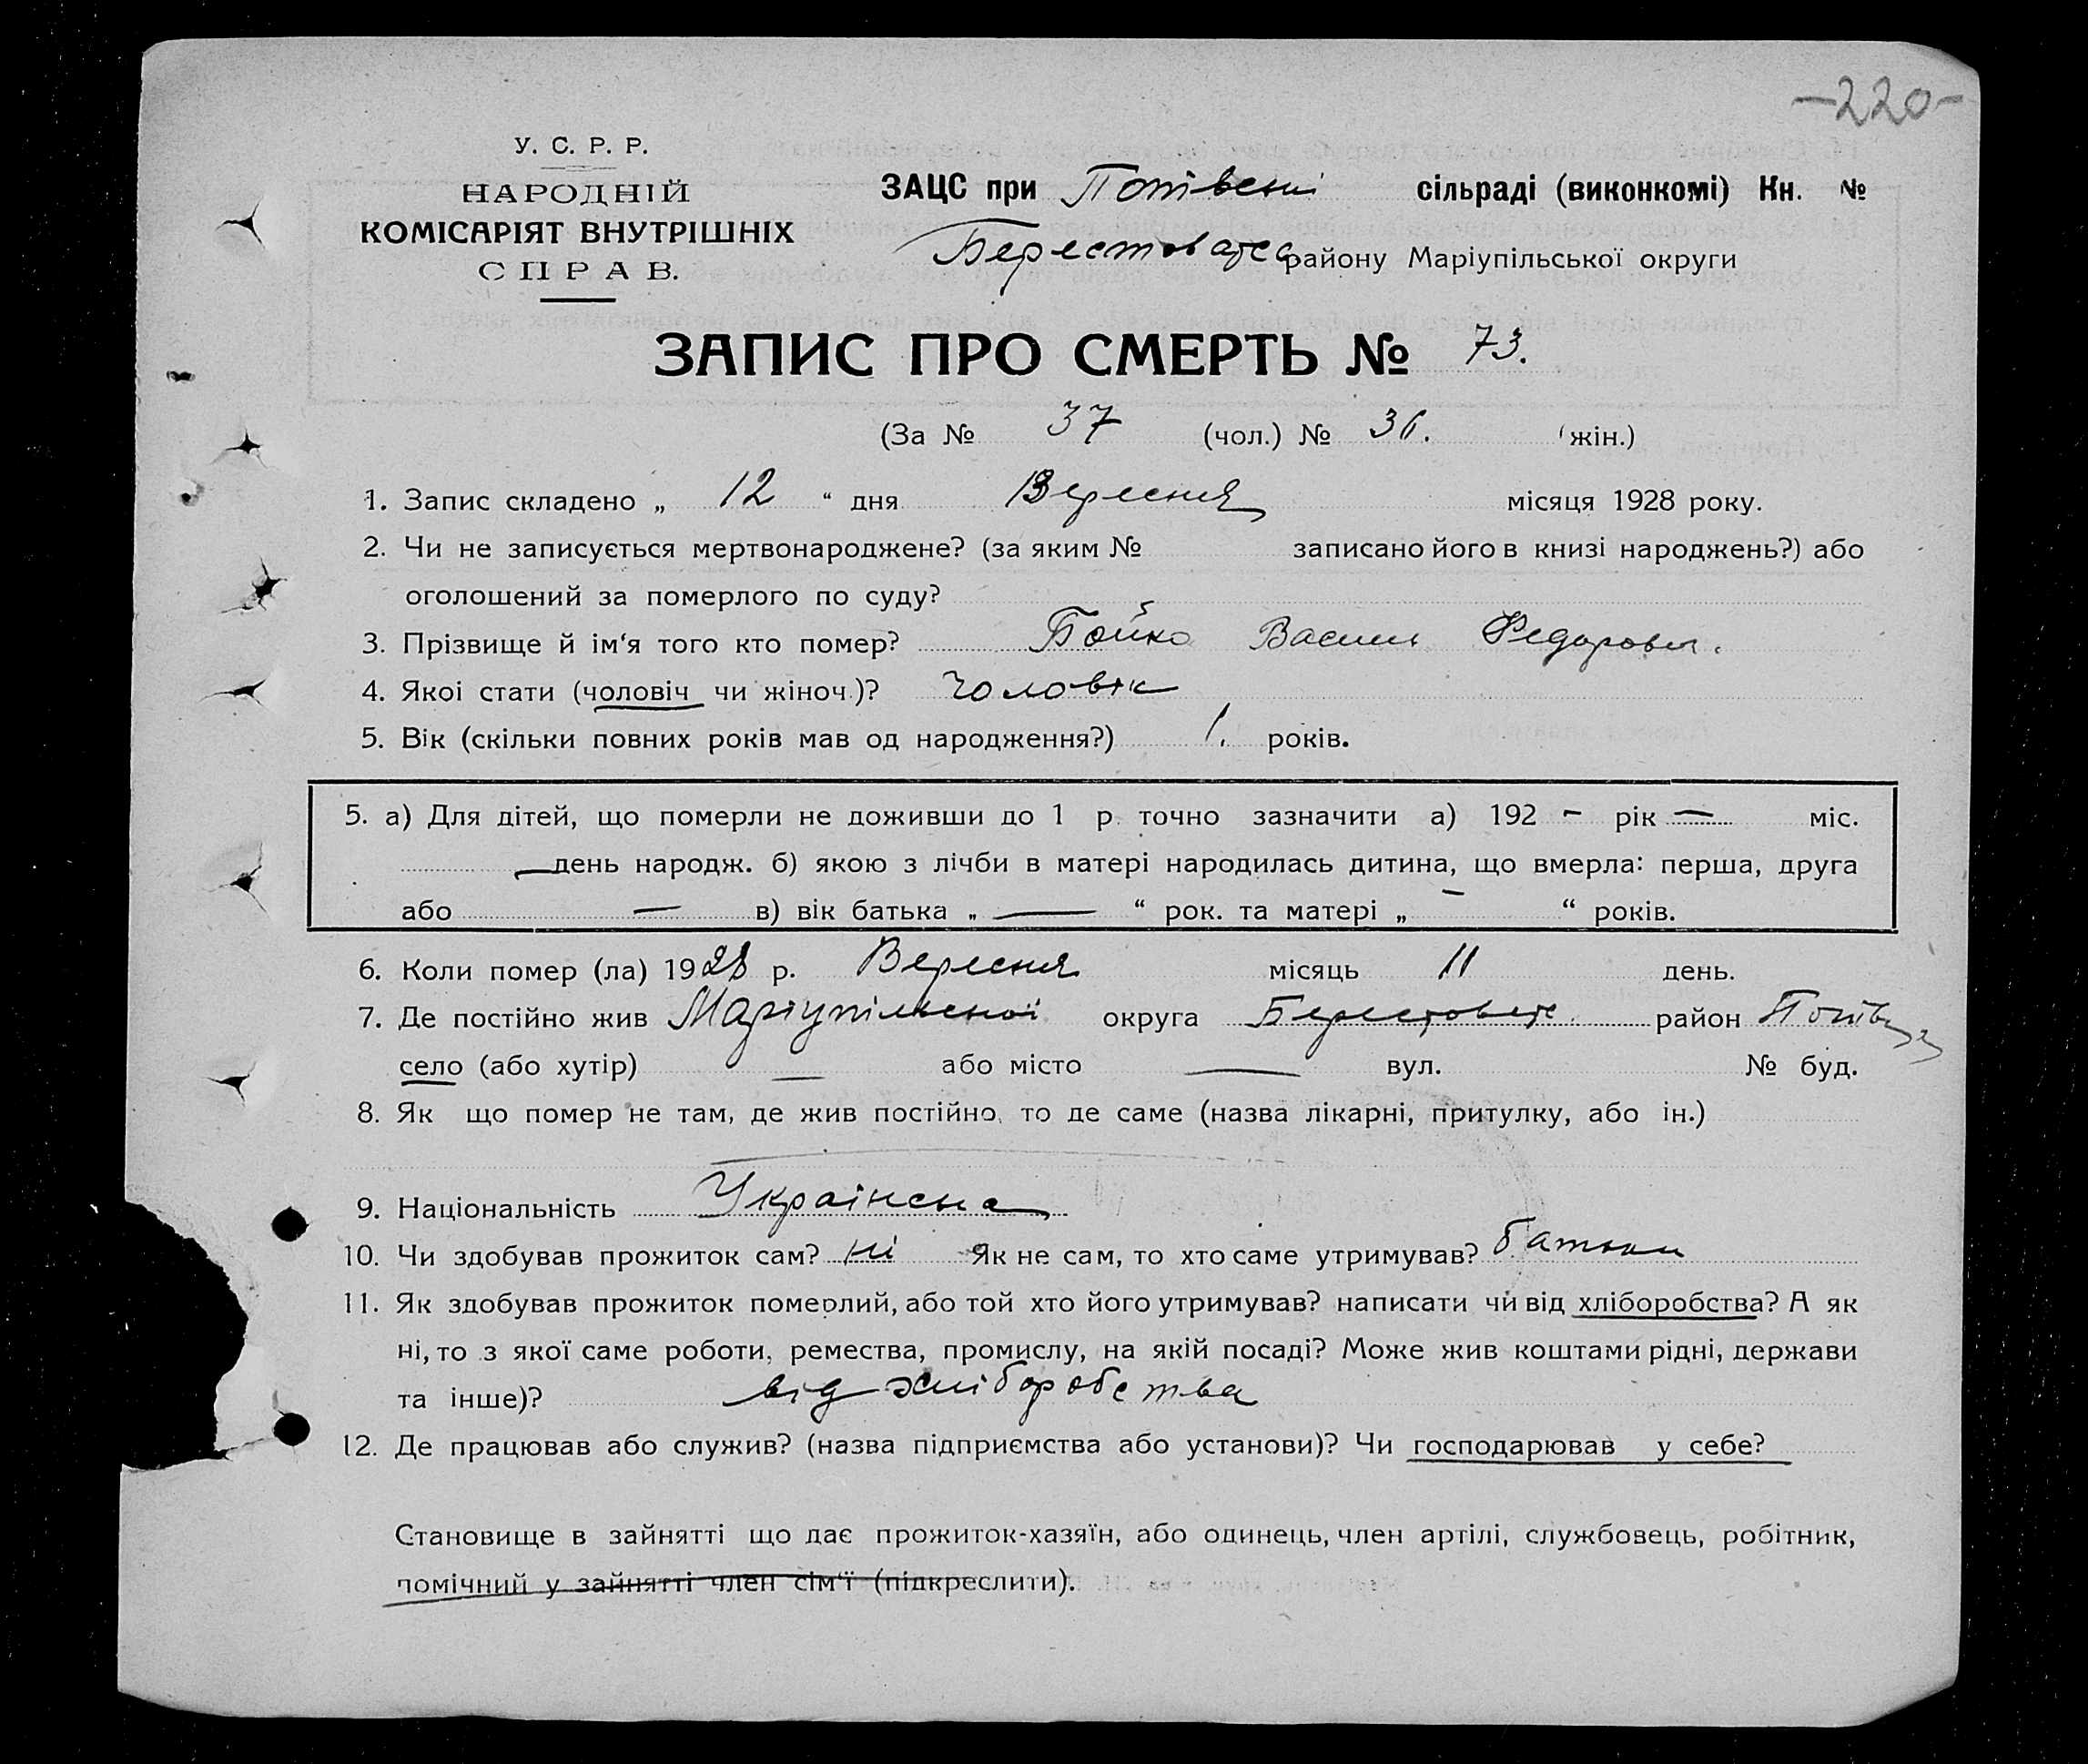 -220-
У. С. Р. Р.
НАРОДНІЙ
КОМІСАРІЯТ ВНУТРІШНІХ
СПРАВ.
ЗАЦС при сільраді (виконкомі) Кн. №
району Маріупільської округи
ЗАПИС ПРО СМЕРТЬ № 73.
(За № 37 (чол.) № 36. (жін.)
1. Запис складено „ 12 “ дня Вересня місяця 1928 року.
2. Чи не записується мертвонароджене? (за яким № записано його в книзі народжень?) або
оголошений за померлого по суду?
3. Прізвище й ім‘я того кто помер? Бойко Василь Федорович.
4. Якоі стати (чоловіч чи жіноч.)? Чоловік
5. Вік (скільки повних років мав од народження?) 1. років.
5. а) Для дітей, що померли не доживши до 1 р точно зазначити а) 192 – рік — міс.
— день народж. б) якою з лічби в матері народилась дитина, що вмерла: перша, друга
або — в) вік батька „ — “ рок. та матері „ – “ років.
6. Коли помер (ла) 1928 р. Вересня місяць 11 день.
7. Де постійно жив Маріупільської округа район
село (або хутір) — або місто — вул. № буд.
8. Як що помер не там, де жив постійно, то де саме (назва лікарні, притулку, або ін.)
—
9. Національність Українська
10. Чи здобував прожиток сам? ні Як не сам, то хто саме утримував? батьки
11. Як здобував прожиток померлий, або той хто його утримував? написати чи від хліборобства? А як
ні, то з якої саме роботи, ремества, промислу, на якій посаді? Може жив коштами рідні, держави
та інше)? від хліборобства
12. Де працював або служив? (назва підприємства або установи)? Чи господарював у себе?
Становище в зайнятті що дає прожиток-хазяїн, або одинець, член артілі, службовець, робітник,
помічний у зайнятті член сім‘ї (підкреслити).